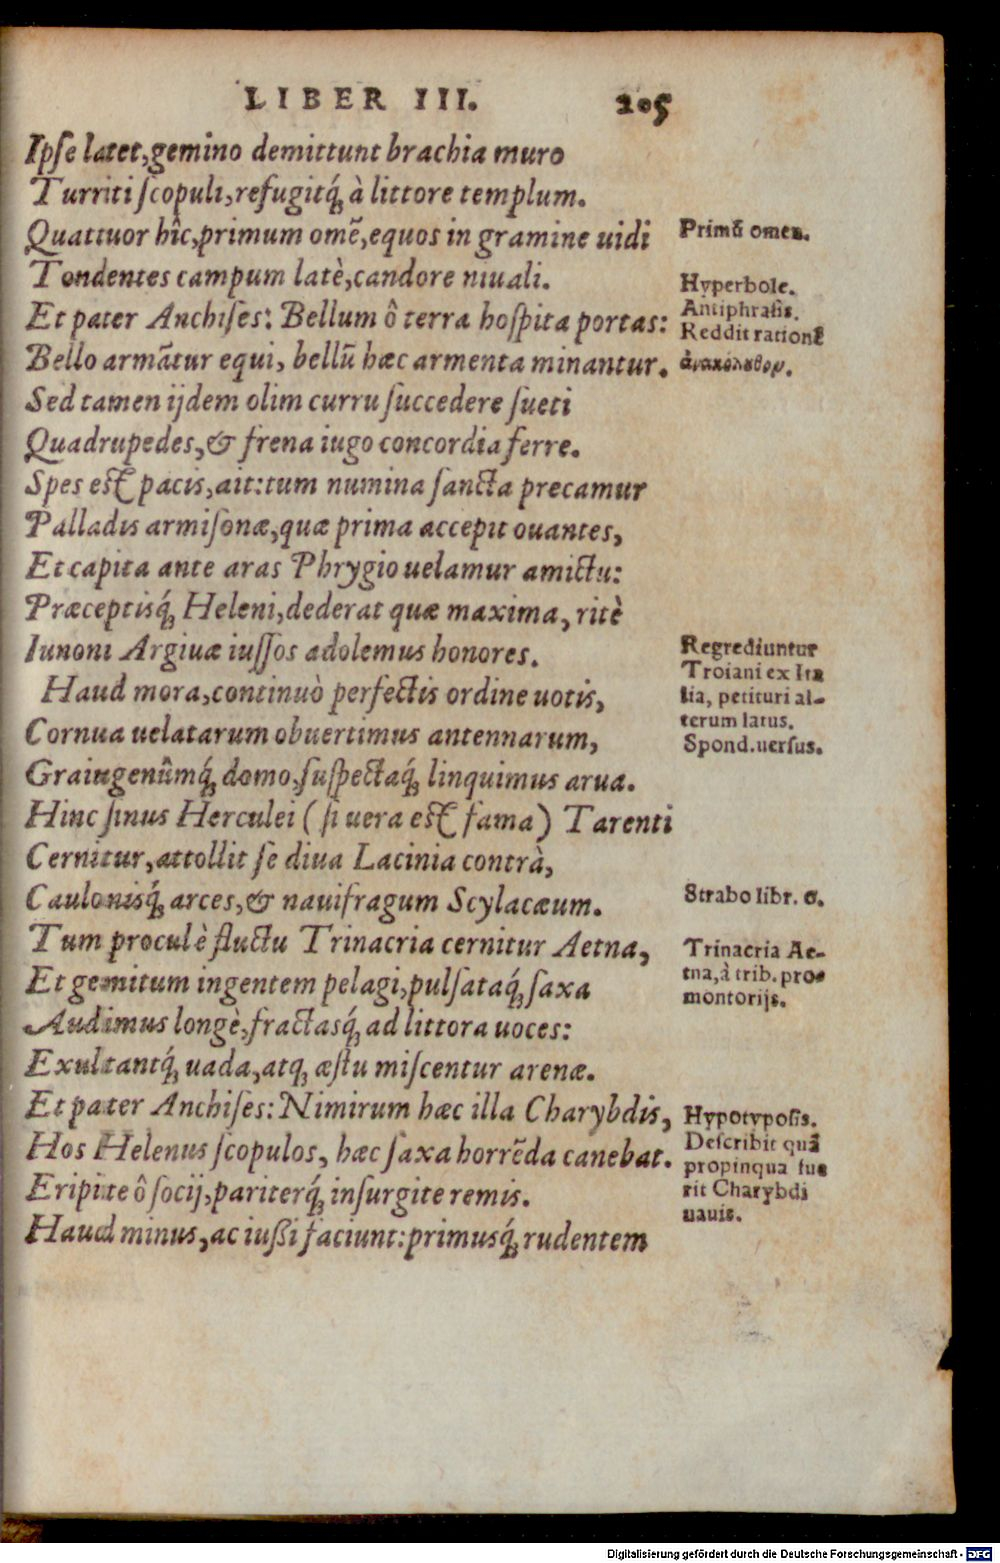 LIBER III. 205
Ipſe latet, gemino demittunt brachia muro
Turriti ſcopuli, refugitq́; à littore templum.
Quattuor hîc, primum omē, equos in gramine uidi
Primū omen.
Tondentes campum latè, candore niuali.
Hyperbole.
Et pater Anchiſes: Bellum ô terra hoſpita portas:
Antiphraſis.
Reddit rationē
Bello armātur equi, bellū hæc armenta minantur.
ἀνακόλουθον.
Sed tamen ijdem olim curru ſuccedere ſueti
Quadrupedes, & frena iugo concordia ferre.
Spes eſt pacis, ait: tum numina ſancta precamur
Palladis armiſonæ, quæ prima accepit ouantes,
Et capita ante aras Phrygio uelamur amictu:
Præceptisq́; Heleni, dederat quæ maxima, ritè
Iunoni Argiuæ iuſſos adolemus honores.
Regrediuntur
Troiani ex Ita
lia, petituri al-
terum latus.
Haud mora, continuò perfectis ordine uotis,
Cornua uelatarum obuertimus antennarum,
Spond. uerſus.
Graiugenûmq́; domo, ſuſpectaq́; linquimus arua.
Hinc ſinus Herculei (ſi uera eſt fama) Tarenti
Cernitur, attollit ſe diua Lacinia contrà,
Caulonisq́; arces, & nauifragum Scylacæum.
Strabo libr. 6.
Tum procul è fluctu Trinacria cernitur Aetna,
Trinacria Ae-
tna, à trib. pro-
montorijs.
Et gemitum ingentem pelagi, pulſataq́; ſaxa
Audimus longè, fractasq́; ad littora uoces:
Exultantq́; uada, atq; æſtu miſcentur arenæ.
Et pater Anchiſes: Nimirum hæc illa Charybdis,
Hypotypoſis.
Hos Helenus ſcopulos, hæc ſaxa horrēda canebat.
Deſcribit quā
propinqua fue
rit Charybdi
nauis.
Eripite ô ſocij, pariterq́; inſurgite remis.
Haud minus, ac iußi faciunt: primusq́; rudentem
Digitalisierung gefördert durch die Deutsche Forschungsgemeinschaft - DFG